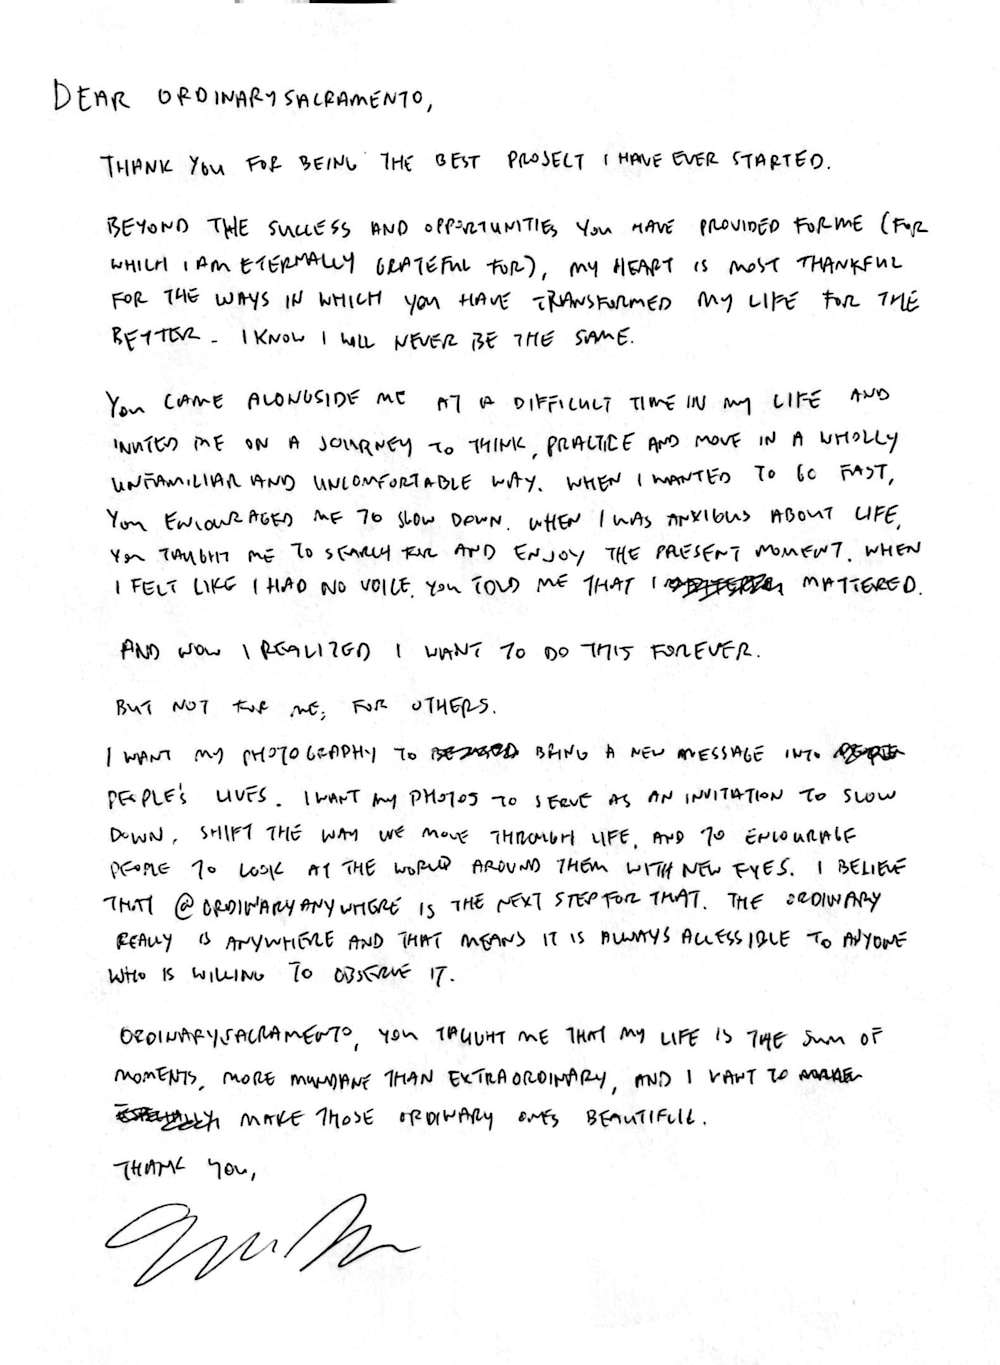 DEAR ORDINARYSACRAMENTO,
THANK YOU FOR BEING THE BEST PROJECT I HAVE EVER STARTED.
BEYOND THE SUCCESS AND OPPORTUNITIES YOU HAVE PROVIDED FOR ME (FOR
WHICH I AM ETERNALLY GRATEFUL FOR), MY HEART IS MOST THANKFUL
FOR THE WAYS IN WHICH YOU HAVE TRANSFORMED MY LIFE FOR THE
BETTER. I KNOW I WILL NEVER BE THE SAME.
YOU CAME ALONGSIDE ME AT A DIFFICULT TIME IN MY LIFE AND
INVITED ME ON A JOURNEY TO THINK, PRACTICE AND MOVE IN A WHOLLY
UNFAMILIAR AND UNCOMFORTABLE WAY. WHEN I WANTED TO GO FAST,
YOU ENCOURAGED ME TO SLOW DOWN. WHEN I WAS ANXIOUS ABOUT LIFE,
YOU TAUGHT ME TO SEARCH FOR AND ENJOY THE PRESENT MOMENT. WHEN
I FELT LIKE I HAD NO VOICE, YOU TOLD ME THAT I MATTERED.
AND NOW I REALIZED I WANT TO DO THIS FOREVER.
BUT NOT FOR ME; FOR OTHERS.
I WANT MY PHOTOGRAPHY TO BRING A NEW MESSAGE INTO
PEOPLE'S LIVES. I WANT MY PHOTOS TO SERVE AS AN INVITATION TO SLOW
DOWN, SHIFT THE WAY WE MOVE THROUGH LIFE, AND TO ENCOURAGE
PEOPLE TO LOOK AT THE WORLD AROUND THEM WITH NEW EYES. I BELIEVE
THAT @ORDINARYANYWHERE IS THE NEXT STEP FOR THAT. THE ORDINARY
REALLY IS ANYWHERE AND THAT MEANS IT IS ALWAYS ACCESSIBLE TO ANYONE
WHO IS WILLING TO OBSERVE IT.
ORDINARYSACRAMENTO, YOU TAUGHT ME THAT MY LIFE IS THE SUM OF
MOMENTS, MORE MUNDANE THAN EXTRAORDINARY, AND I WANT TO
MAKE THOSE ORDINARY ONES BEAUTIFUL.
THANK YOU,